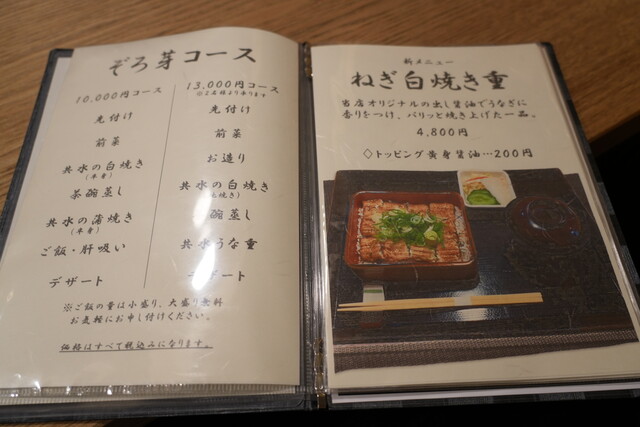 ぞろ芽コース
10,000円コース
先付け
前菜
共水の白焼き
(半身)
茶碗蒸し
共水の蒲焼き
(半身)
ご飯・肝吸い
デザート
13,000円コース
※2名様より承ります
先付け
前菜
お造り
共水の白焼き
碗蒸し
共水うな重
デザート
※ご飯の量は小盛り、大盛り無料
お気軽にお申し付けください。
価格はすべて税込みになります。
新メニュー
ねぎ白焼き重
当店オリジナルの出し醤油でうなぎに
香りをつけ、パリッと焼き上げた一品。
4,800円
◇トッピング黄身醤油…200円